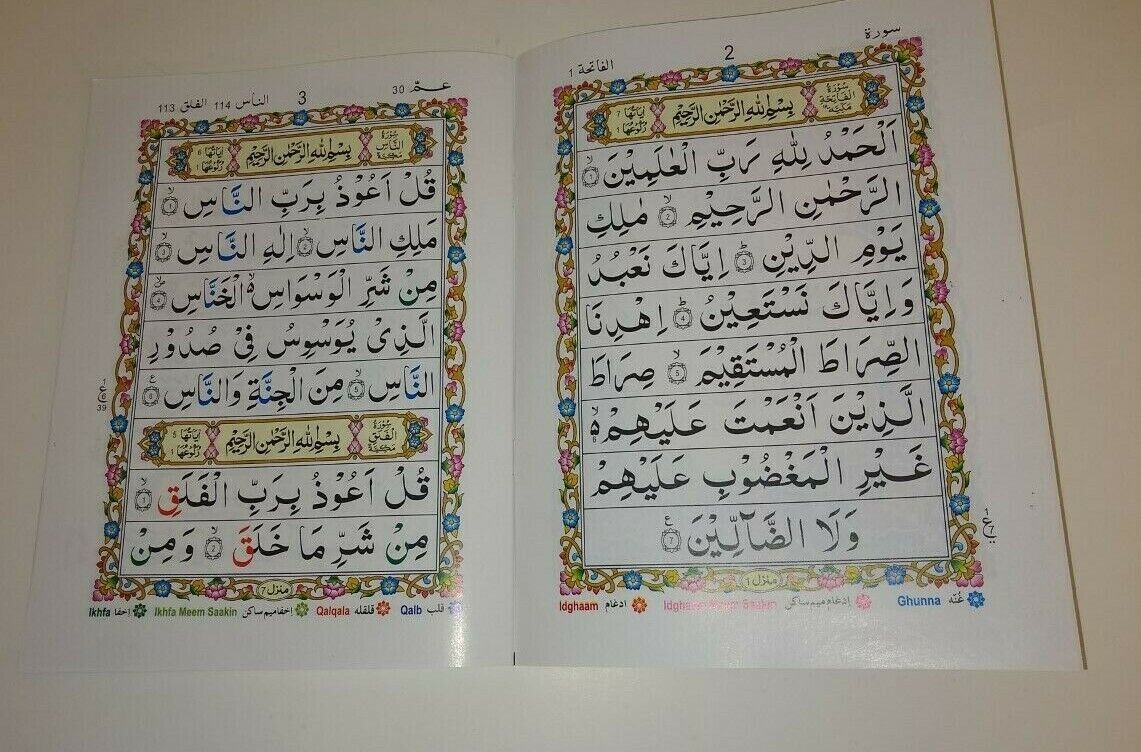 سورة
2
الفاتحة 1
سُوْرَةُ الْفَاتِحَةِ مَكِّيَّةٌ
بِسْمِ اللهِ الرَّحْمٰنِ الرَّحِيْمِ
اٰيَاتُهَا 7 رُكُوْعُهَا 1
اَلْحَمْدُ لِلّٰهِ رَبِّ الْعٰلَمِيْنَ ۙ ۝1
الرَّحْمٰنِ الرَّحِيْمِ ۙ ۝2 مٰلِكِ
يَوْمِ الدِّيْنِ ؕ ۝3 اِيَّاكَ نَعْبُدُ
وَاِيَّاكَ نَسْتَعِيْنُ ؕ ۝4 اِهْدِنَا
الصِّرَاطَ الْمُسْتَقِيْمَ ۙ ۝5 صِرَاطَ
الَّذِيْنَ اَنْعَمْتَ عَلَيْهِمْ ۙ 6
غَيْرِ الْمَغْضُوْبِ عَلَيْهِمْ
وَلَا الضَّآلِّيْنَ ۝7
ع 1 7
منزل 1
غُنّه Ghunna
إدغام ميم ساكن Idghaam Meem Saakin
ادغام Idghaam
عـمّ 30
3
الناس 114 الفلق 113
سُوْرَةُ النَّاسِ مَكِّيَّةٌ
بِسْمِ اللهِ الرَّحْمٰنِ الرَّحِيْمِ
اٰيَاتُهَا 6 رُكُوْعُهَا 1
قُلْ اَعُوْذُ بِرَبِّ النَّاسِ ۙ ۝1
مَلِكِ النَّاسِ ۙ ۝2 اِلٰهِ النَّاسِ ۙ ۝3
مِنْ شَرِّ الْوَسْوَاسِ ۙ الْخَنَّاسِ ۝4
الَّذِيْ يُوَسْوِسُ فِيْ صُدُوْرِ
النَّاسِ ۙ ۝5 مِنَ الْجِنَّةِ وَالنَّاسِ ۝6
ع 1 6 39
سُوْرَةُ الْفَلَقِ مَكِّيَّةٌ
بِسْمِ اللهِ الرَّحْمٰنِ الرَّحِيْمِ
اٰيَاتُهَا 5 رُكُوْعُهَا 1
قُلْ اَعُوْذُ بِرَبِّ الْفَلَقِ ۙ ۝1
مِنْ شَرِّ مَا خَلَقَ ۙ ۝2 وَمِنْ
منزل 7
قلب Qalb
قلقله Qalqala
إخفا ميم ساكن Ikhfa Meem Saakin
إخفا Ikhfa